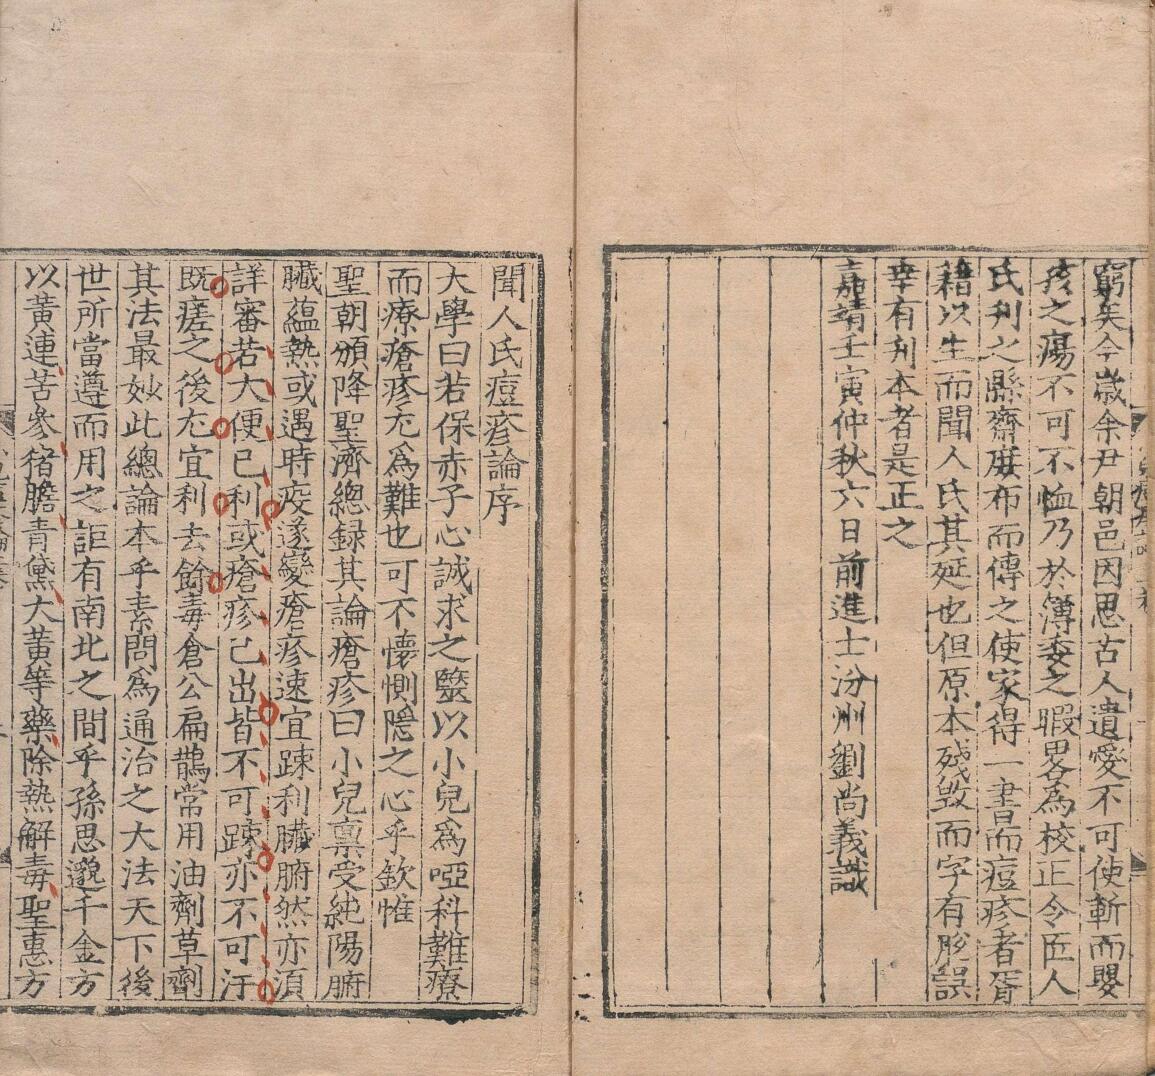 窮矣今歲余尹朝邑因思古人遺愛不可使斬而嬰
孩之瘍不可不恤乃於簿委之暇畧為校正令匠人
氏刋之縣齋庻布而傳之使家得一書而痘疹者胥
藉以生而聞人氏其延也但原本殘毀而字有脫誤
幸有刋本者是正之
嘉靖壬寅仲秋六日前進士汾州劉尚義識
聞人氏痘疹論序
大學曰若保赤子心誠求之毉以小兒為啞科難療
而療瘡疹尤為難也可不懷惻隠之心乎欽惟
聖朝頒降聖濟總録其論瘡疹曰小兒禀受純陽腑
臟蘊熱或遇時疫遂變瘡疹速宜踈利臟腑然亦湏
詳審若大便已利或瘡疹已出皆不可踈亦不可汙
既瘥之後尤宜利去餘毒倉公扁鵲常用油劑草劑
其法最妙此總論本乎素問為通治之大法天下後
世所當遵而用之詎有南北之間乎孫思邈千金方
以黃連苦參猪膽青黛大黃等藥除熱解毒聖惠方